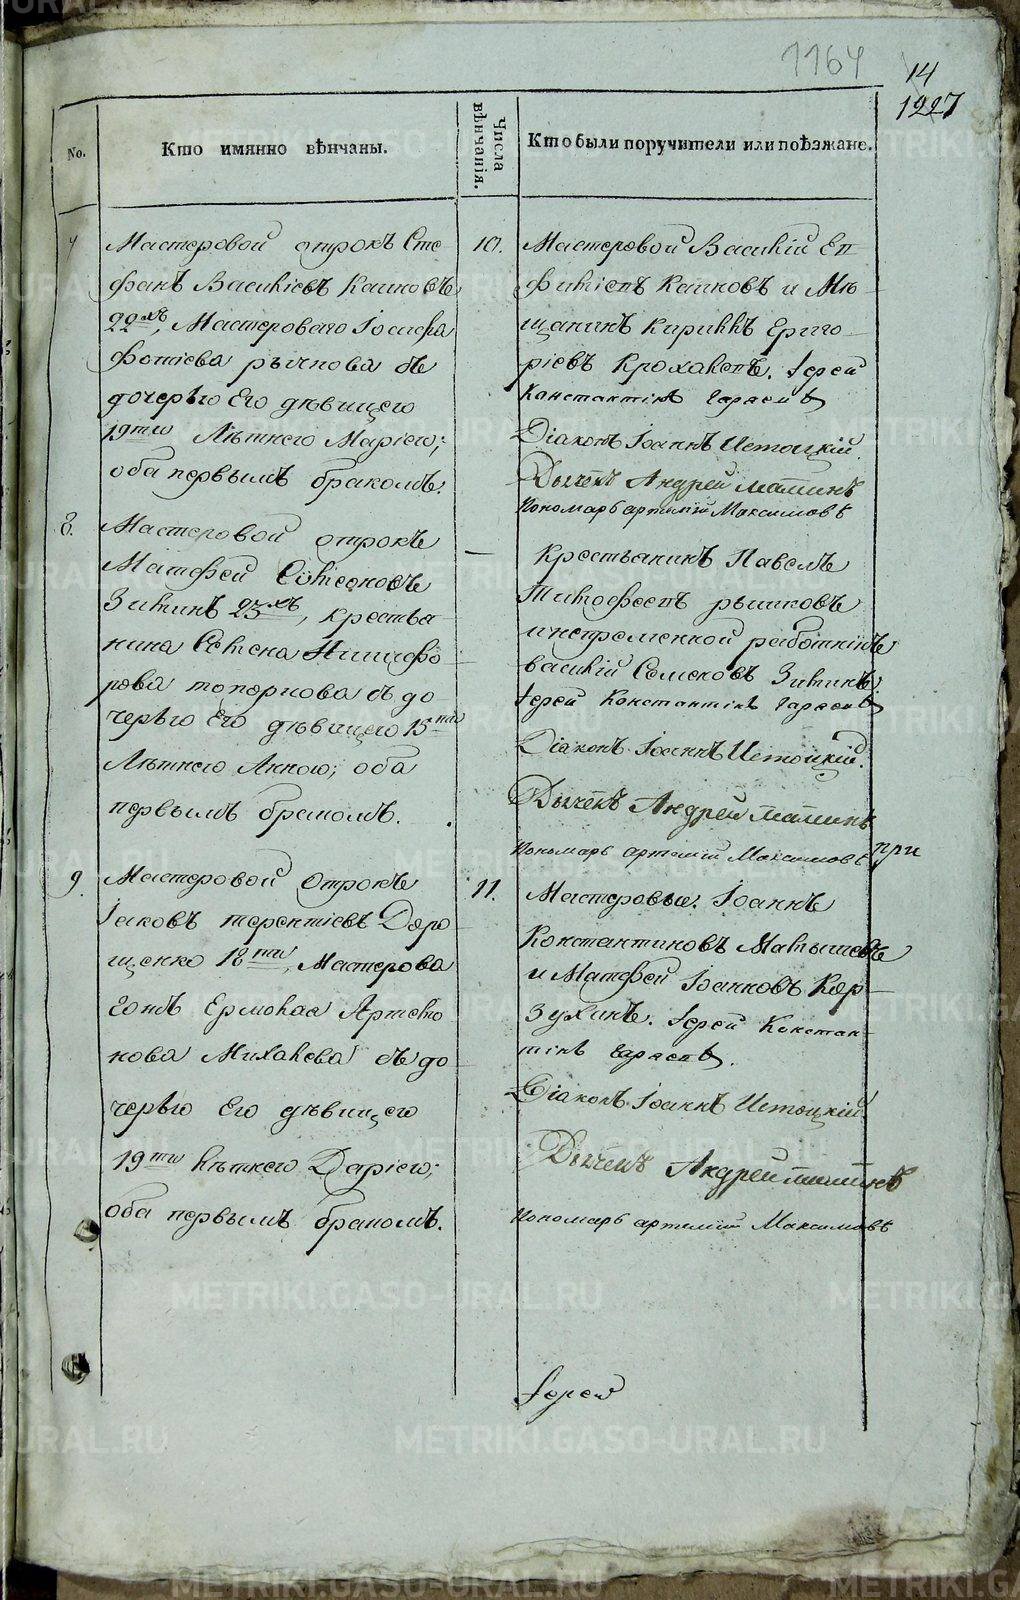 1164
14
1227
No.
Кто имянно вѣнчаны.
Числа вѣнчанія.
Кто были поручители или поѣзжане.
7
Мастеровой отрокъ Сте
фанъ Васильевъ Кашковъ
22хъ, Мастероваго Іосифа
Фотіева рычкова съ
дочерью Его дѣвицею
19тью Лѣтнею Маріею;
оба первымъ бракомъ.
10.
Мастеровой Василій
Кашковъ и Мѣ
щанинъ Кириллъ Григо
ріевъ Іерей
Константинъ
Діаконъ Іоаннъ Истоцкій.
Дьячекъ Андрей
Пономарь артемій Максимовъ
8.
Мастеровой отрокъ
Матфей Симеоновъ
Зиминъ 23хъ, крестья
нина Никифо
рова топоркова съ до
черью Его дѣвицею 15тью
Лѣтнею Анною; оба
первымъ бракомъ.
—
крестьянинъ Павелъ
Тимофеевъ рычковъ
работникъ
василій Семеновъ Зиминъ.
Іерей Константинъ
Діаконъ Іоаннъ Истоцкій.
Дьячекъ Андрей
Пономарь артемій Максимовъ
при
9.
Мастеровой Отрокъ
Іаковъ терентіевъ Доро
щенко 18тью, Мастерова
Ермолая Артемо
нова Михалева съ до
черью Его дѣвицею
19тью лѣтнею Даріею;
оба первымъ бракомъ.
11.
Мастеровые: Іоаннъ
Константиновъ
и Матфей Іоанновъ Кор
зухинъ. Іерей Констан
тинъ
Діаконъ Іоаннъ Истоцкій
Дьячекъ Андрей
Пономарь артемій Максимовъ
Іерей
METRIKI.GASO-URAL.RU